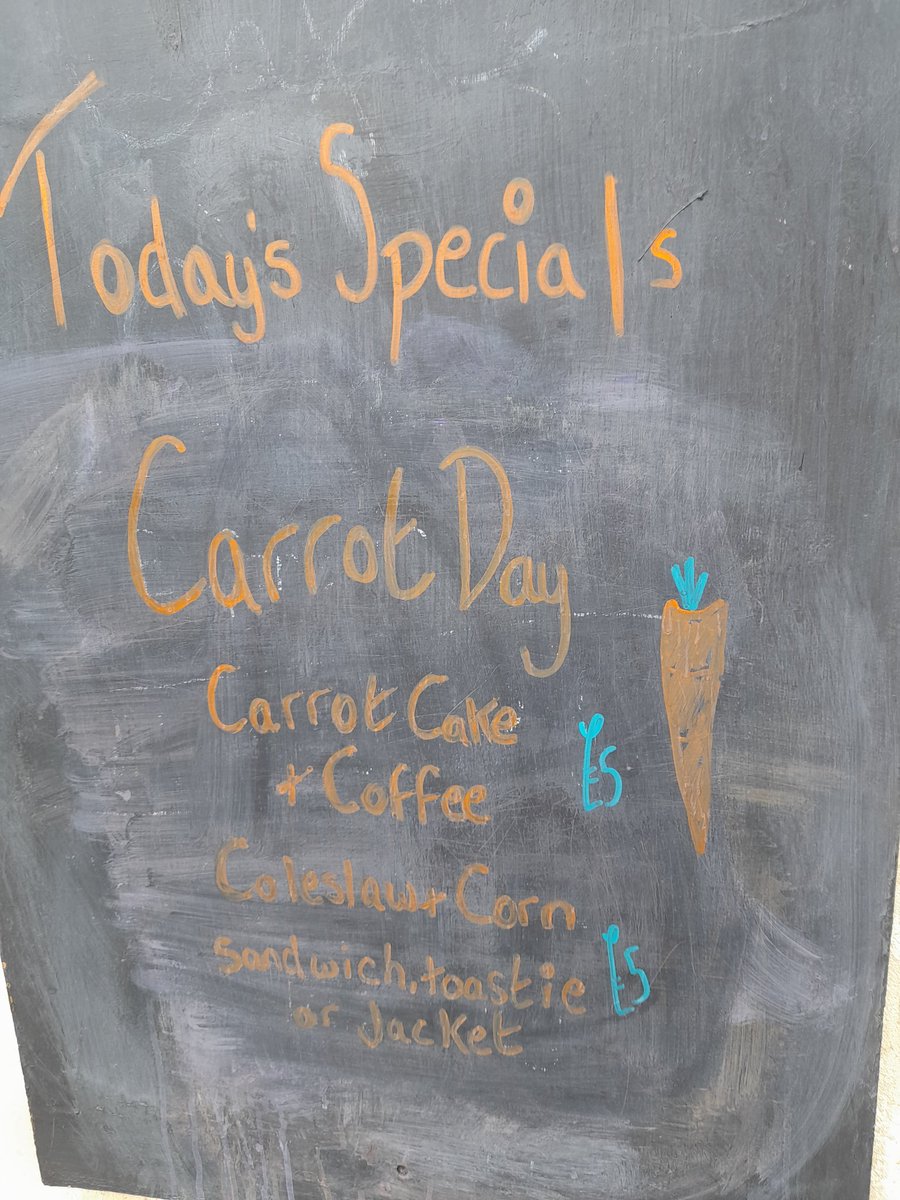 Today's Specials
Carrot Day
Carrot Cake
+ Coffee £5
Coleslaw + Corn
sandwich, toastie £5
or Jacket